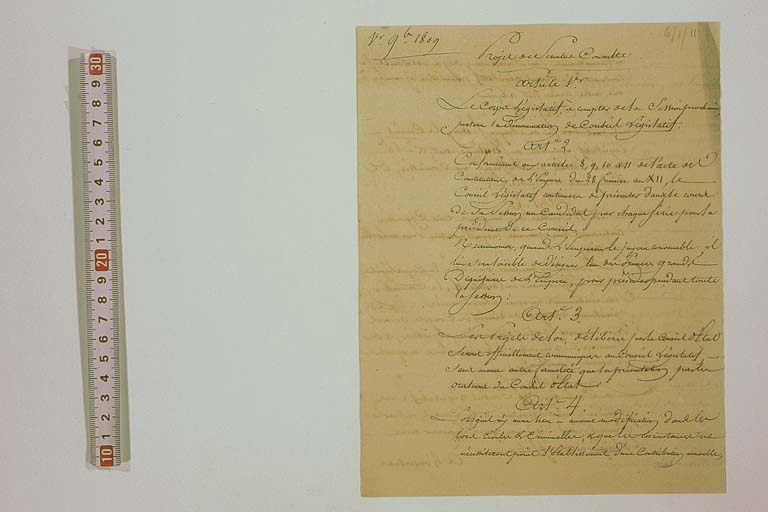 1er 9b 1809
6/1/11
Projet de Senatus Consulte
Article 1er
Le Corps Législatif, à compter de la Session prochaine,
portera la Dénomination de Conseil Législatif.
Art. 2.
Conformément aux articles 8, 9, 10 & 11 de l'acte des
Constitutions de l'Empire du 28 frimaire an XII, le
Conseil Législatif continuera de présenter dans le cours
de sa Session un Candidat par chaque Série, pour la
présidence de ce Conseil.
Néanmoins, quand l'Empereur le jugera convenable, il
lui sera loisible de désigner l'un des Princes grands
Dignitaires de l'Empire, pour présider pendant toute
la session.
Art. 3.
Les Projets de loi, délibérés par le Conseil d'Etat
seront officiellement communiqués au Conseil Législatif
sans aucune autre formalité que la présentation par les
orateurs du Conseil d'Etat.
Art. 4
Lorsqu'il n'y aura lieu à aucune modification dans les
lois civiles & criminelles, & que les circonstances ne
nécessiteront point l'établissement d'une Contribution nouvelle,
30
9
8
7
6
5
4
3
2
1
20
9
8
7
6
5
4
3
2
1
10